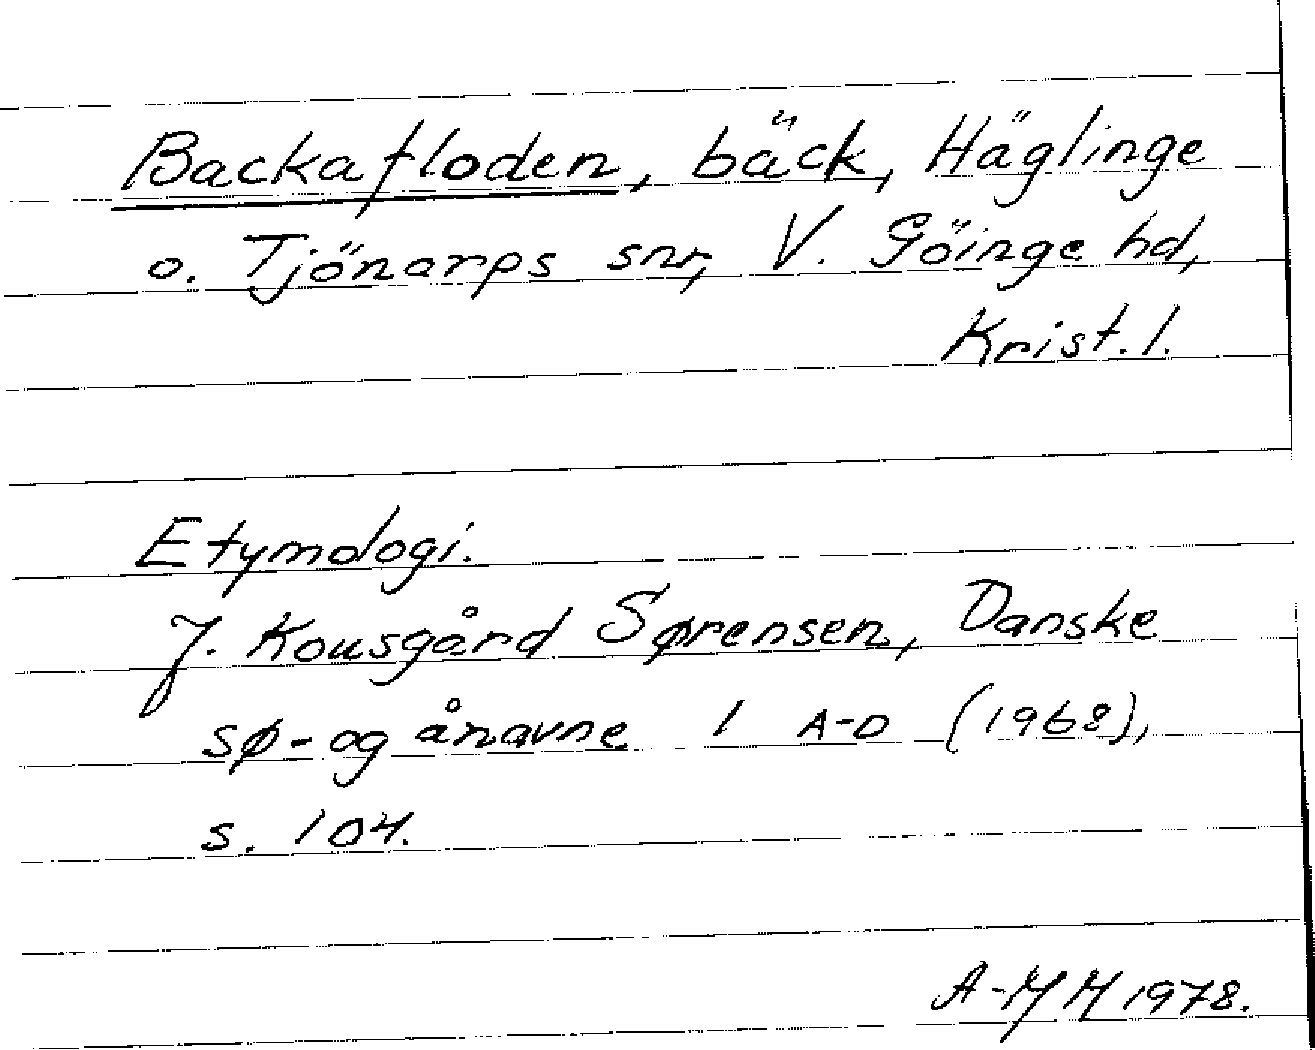 Backafloden, bäck, Häglinge
o. Tjönarps snr, V. Göinge hd,
Krist. l.
Etymologi.
J. Kousgård Sørensen, Danske
sø- og ånavne 1 A-D (1968),
s. 104.
A-MM 1978.